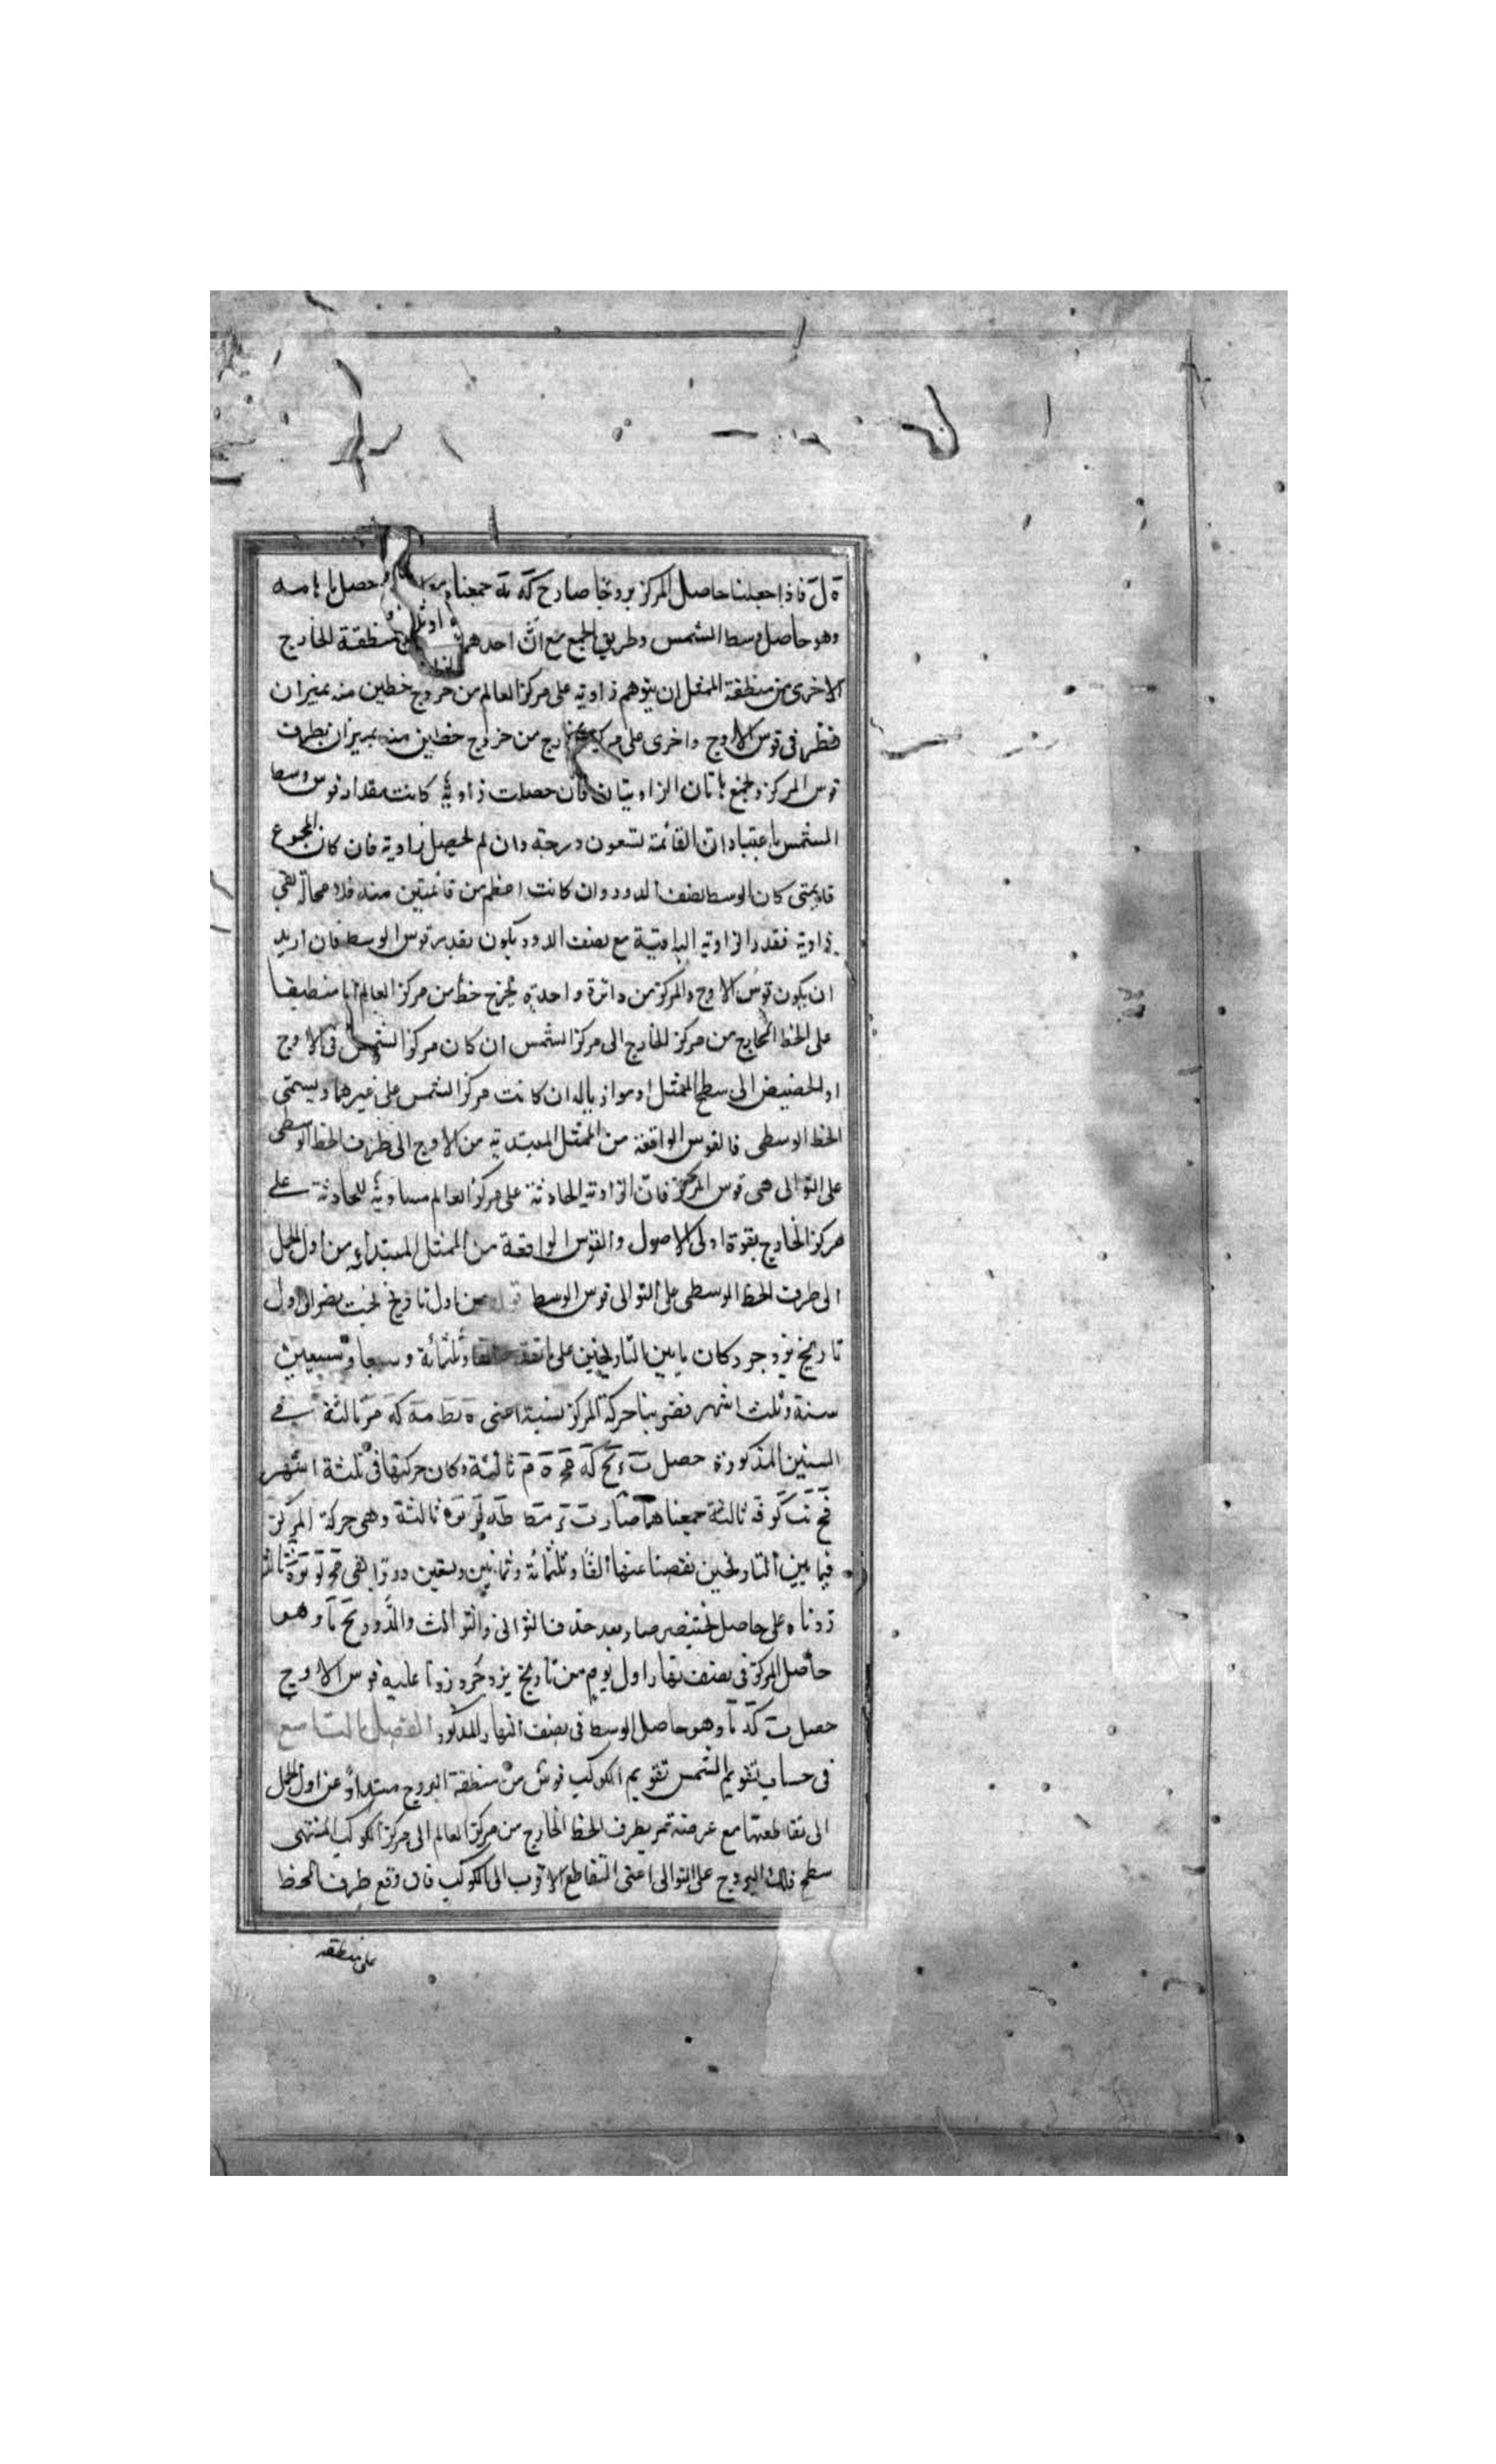 ة ل فاذا جعلنا حاصل المركز بروجا صار ح كه نه جمعناه حصل يا يا مه
وهو حاصل وسط الشمس وطريق الجمع مع ان احدهما من منطقة الخارج
الاخرى من منطقة الممثل ان يتوهم زاوية على مركز العالم من خروج خطين منه يميزان
فنظر فى قوس الاوج واخرى على مركز الخارج من خروج خطين منه يميزان بطرف
قوس المركز ويجمع هاتان الزاويتان فان حصلت زاوية كانت مقدار قوس وسط
الشمس باعتبار ان القائمة تسعون درجة وان لم يحصل زاوية فان كان المجموع
قايمتى كان الوسط نصف الدور وان كانت اعظم من قائمتين منه فلا محالة بقى
زاوية فقدر الزاوية الباقية مع نصف الدور يكون بقدر قوس الوسط فان اريد
ان يكون قوس الاوج والمركز من دائرة واحدة يخرج خط من مركز العالم اما منطبقا
على الخط الخارج من مركز الخارج الى مركز الشمس ان كان مركز الشمس فى الاوج
او الحضيض الى سطح الممثل او موازيا له ان كانت مركز الشمس على غيرهما ويسمى
الخط الوسطى فالقوس الواقعة من الممثل المبتدية من الاوج الى طرف الخط الوسطى
على التوالى هى قوس المركز فان الزاوية الحادثة على مركز العالم مساوية للحادثة على
مركز الخارج بقوة اولى الاصول والقوس الواقعة من الممثل المبتداءة من اول الحمل
الى طرف الخط الوسطى على التوالى قوس الوسط من اول تاريخ بخت نصر الى اول
تاريخ يزدجرد كان ما بين التاريخين على وثلثمائة وسبعا وتسعين
سنة وثلث اشهر فضربنا حركة المركز لسنة اعنى ثالثة فى
السنين المذكورة حصل ثالثة وكان حركتها فى ثلثة اشهر
ثالثة جمعناهما صارت ثالثة وهى حركة المركز
فيما بين التاريخين نقصنا عنها الفا وثلثمائة وثمانين وتسعين دورا بقى
زدناه على حاصل بختنصر صار بعد حذف الثوانى والثوالث والدور وهو
حاصل المركز فى نصف نهار اول يوم من تاريخ يزدجرد زدنا عليه قوس الاوج
حصل وهو حاصل الوسط فى نصف النهار المذكور الفصل التاسع
فى حساب تقويم الشمس تقويم الكوكب قوس من منطقة البروج مبتداة من اول الحمل
الى تقاطعها مع عرضية تمر بطرف الخط الخارج من مركز العالم الى مركز الكوكب المنتهى
سطح فلك البروج على التوالى اعنى التقاطع الاقرب الى الكوكب فان وقع طرف الخط
على منطقة